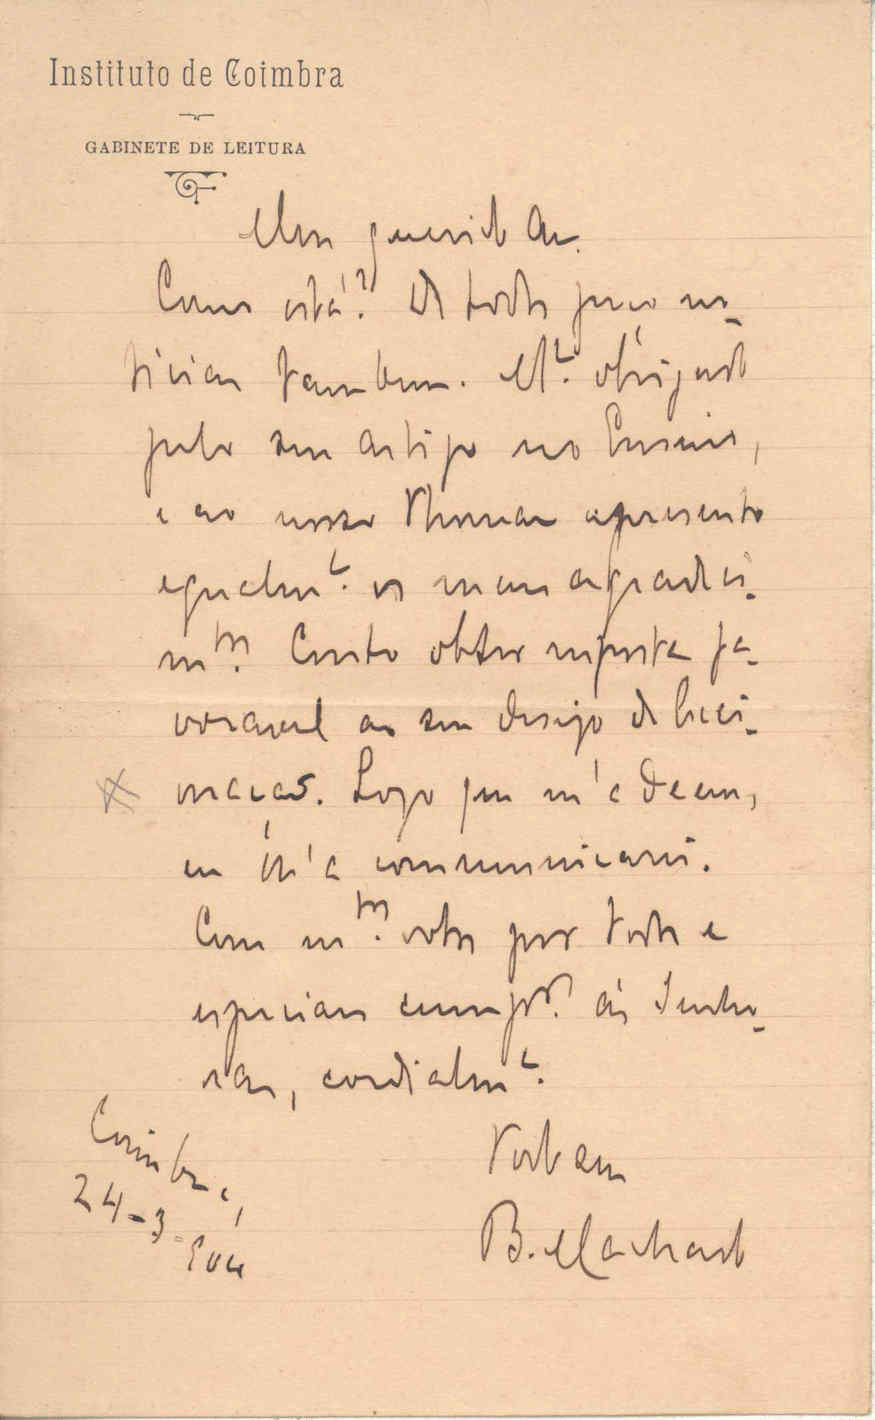 Instituto de Coimbra
GABINETE DE LEITURA
Meu querido Am.
Como está? De todos peço no-
ticias tambem. Mt. obrigado
pelo seu artigo no Ensino,
e ao nosso Thomaz apresento
egualmt. os meus agradeci-
mtos. Conto obter resposta fa-
voravel ao seu desejo de
Logo que m'a dêem,
eu lh'a communicarei.
Com mtos. votos por todos e
especiaes cumptos. ás Senho-
ras, cordialmt.
Todo seu
B. Machado
Coimbra,
24-3-